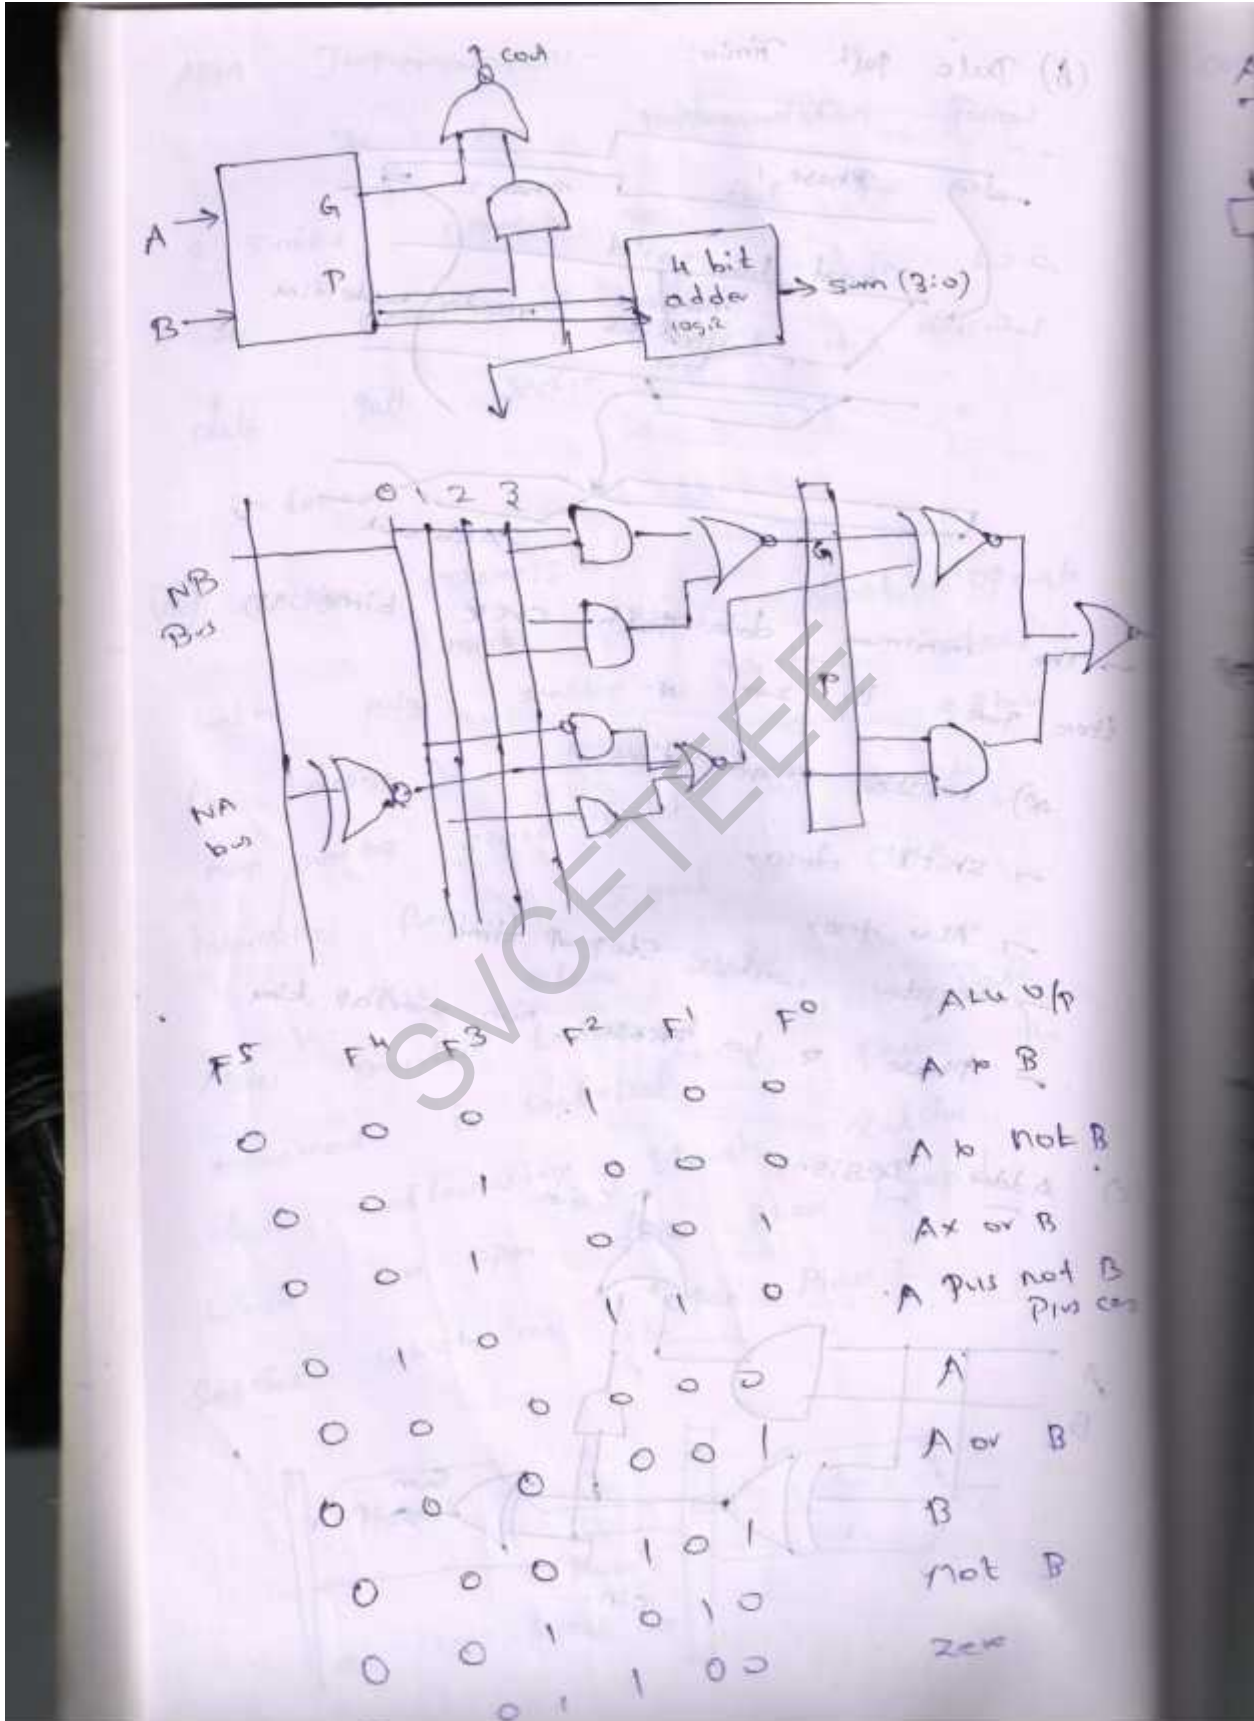 cout
G
A
P
B
4 bit
adder
logic
sum (3:0)
0 1 2 3
NB
Bus
G
P
NA
bus
SVCETEE
F5 F4 F3 F2 F1 F0 ALU O/P
0 0 0 1 0 0 A to B
0 0 1 0 0 0 A to not B
0 0 1 0 0 1 Ax or B
0 1 0 1 1 0 A Plus not B
Plus
0 0 0 0 0 0 A
0 0 0 0 0 1 A or B
0 0 0 1 0 1 B
0 0 1 0 1 0 not B
0 1 1 0 0 Zero